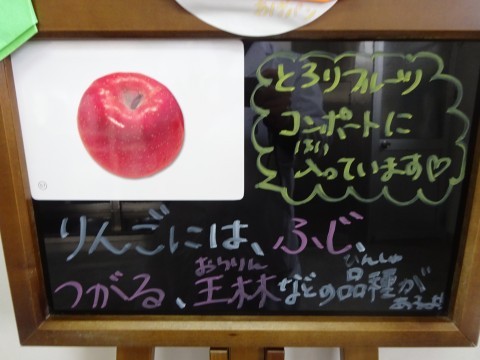 とろりフルーツ
コンポートに
はい
入っています♡
りんごには、ふじ、
おうりん
ひんしゅ
つがる、王林などの品種が
あるよ!